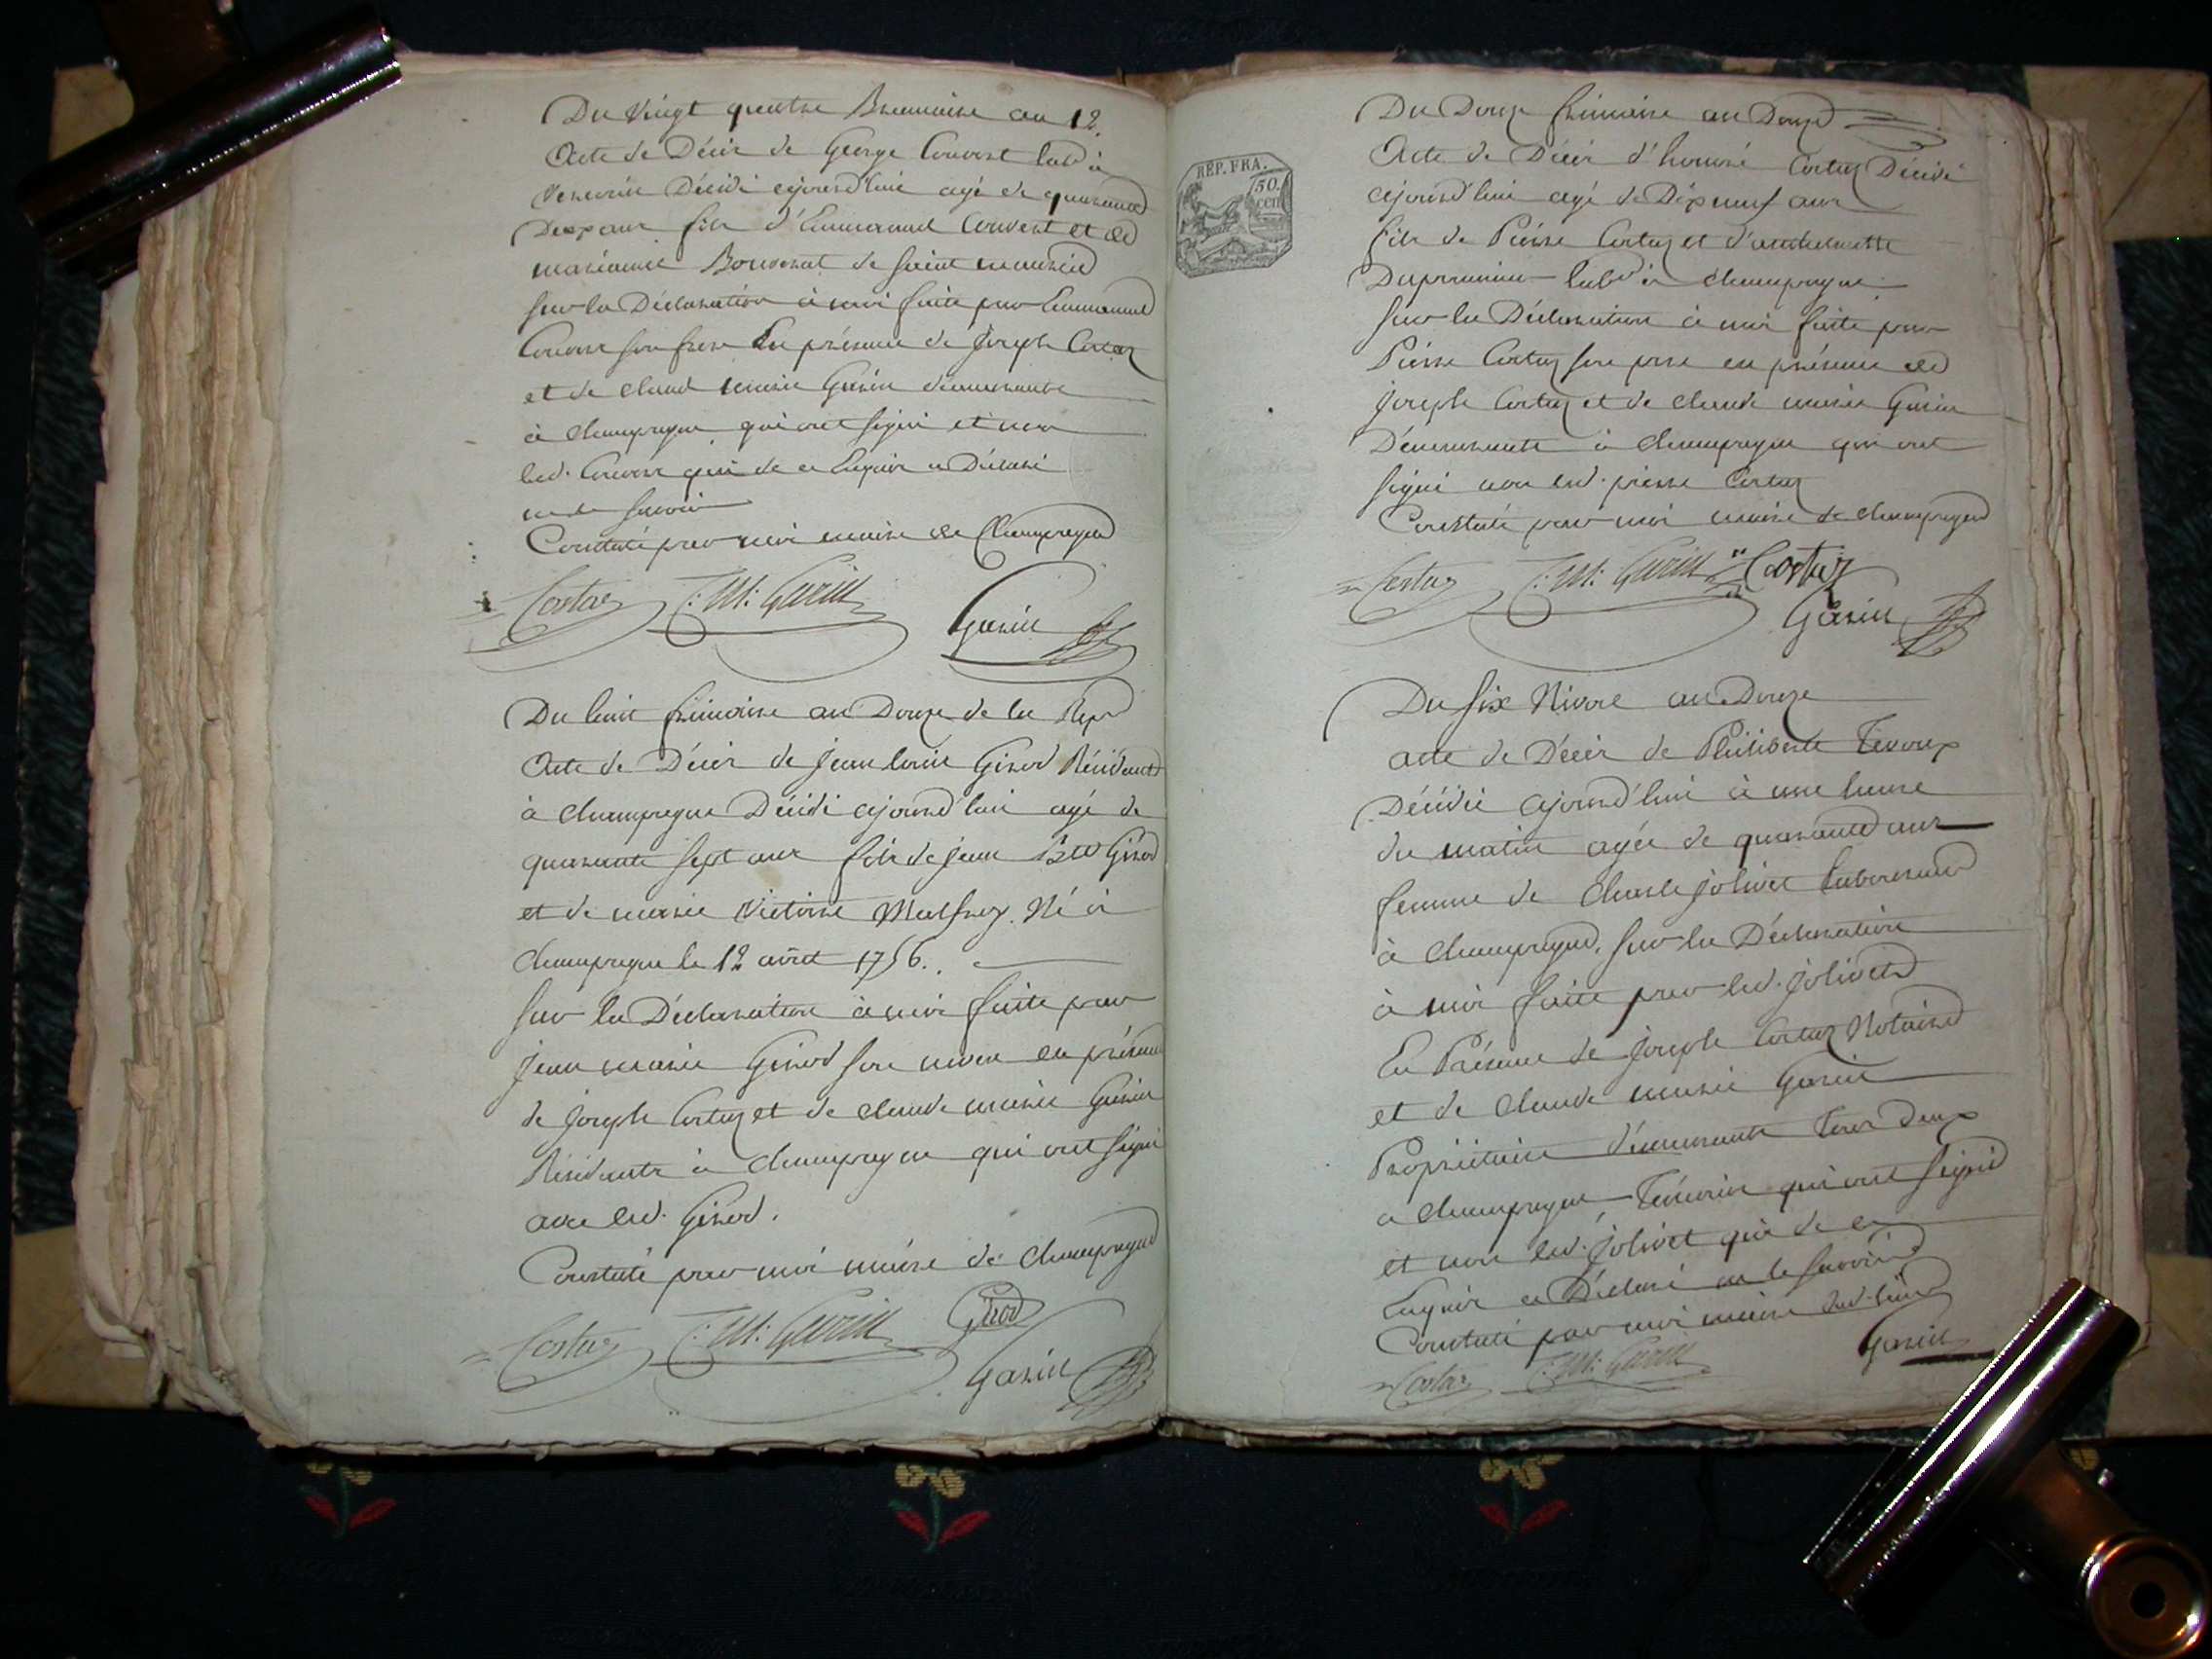 Du Vingt quatre Brumaire an 12.
Acte de Décès de George Couvert hab.t à
décédé ajourd'hui agé de quarante
Deux ans fils d'Emmanuel Couvert et de
marianne de saint
sur la Déclaration à moi faite par Emmanuel
Couvert son frere En présence de Joseph Costaz
et de Claud marie Garin demeurants
à champagne qui ont signé et non
led. Couvert qui de ce Enquis a Déclaré
ne le savoir
Constaté par moi maire de Champagne
Costaz C: M: Garin
Garin
Du huit frimaire an Douze de la Rep.
Acte de Décès de Jean louis Girod Résidant
à champagne Décédé ajourd'hui agé de
quarante sept ans fils de Jean Bte Girod
et de marie Victoire Malfrey. Né à
champagne le 12 avril 1756.
sur la Déclaration à moi faite par
Jean marie Girod son neveu en présence
de Joseph Costaz et de claude marie Garin
Résidants à champagne qui ont signé
avec led. Girod.
Constaté par moi maire de champagne
Costaz C: M: Garin Girod
Garin
REP. FRA.
50.
cen
Du Douze frimaire an Douze
Acte de Décès d'honoré Costaz Décédé
ajourd'hui agé de Dix neuf ans
fils de Pierre Costaz et d'anthelmette
hab.t à champagne
sur la Déclaration à moi faite par
Pierre Costaz son pere en présence de
Joseph Costaz et de claude marie Garin
Demeurants à champagne qui ont
signé avec led. pierre Costaz
Constaté par moi maire de champagne
Costaz C: M: Garin Costaz
Garin
Du six Nivose an Douze
acte de Décès de Philiberte
Décédée ajourd'hui à une heure
du matin agée de quarante ans
femme de Charle jolivet laboureur
à champagne, sur la Déclaration
à moi faite par led. jolivet
En Présence de Joseph Costaz Notaire
et de claude marie Garin
Propriétaire demeurants tous deux
a champagne, Témoins qui ont signé
et non led. jolivet qui de ce
Enquis a Déclaré ne le savoir
Constaté par moi maire dud. lieu
Costaz C: M: Garin Garin